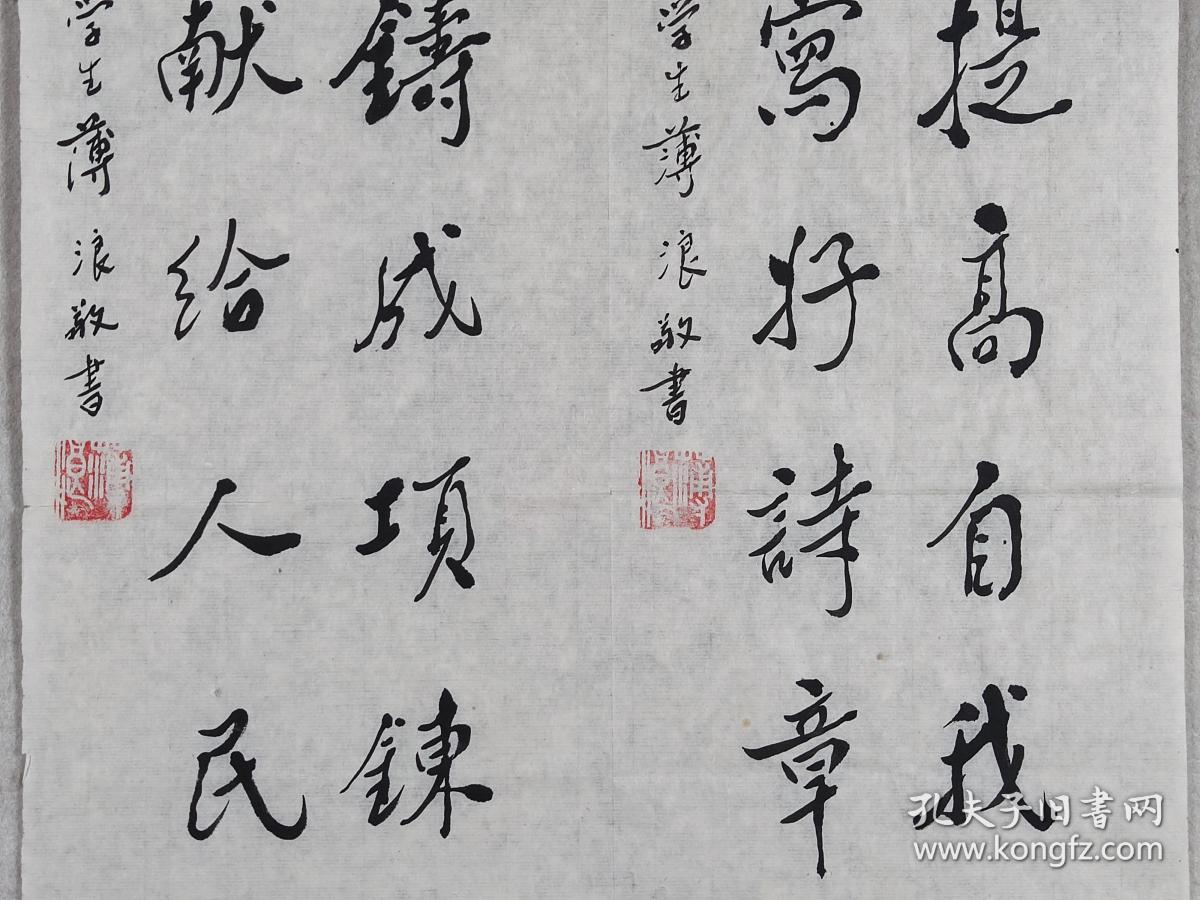 提高自我
寫好詩章
学生薄浪敬書
鑄成項鍊
献給人民
学生薄浪敬書
孔夫子旧書网
www.kongfz.com